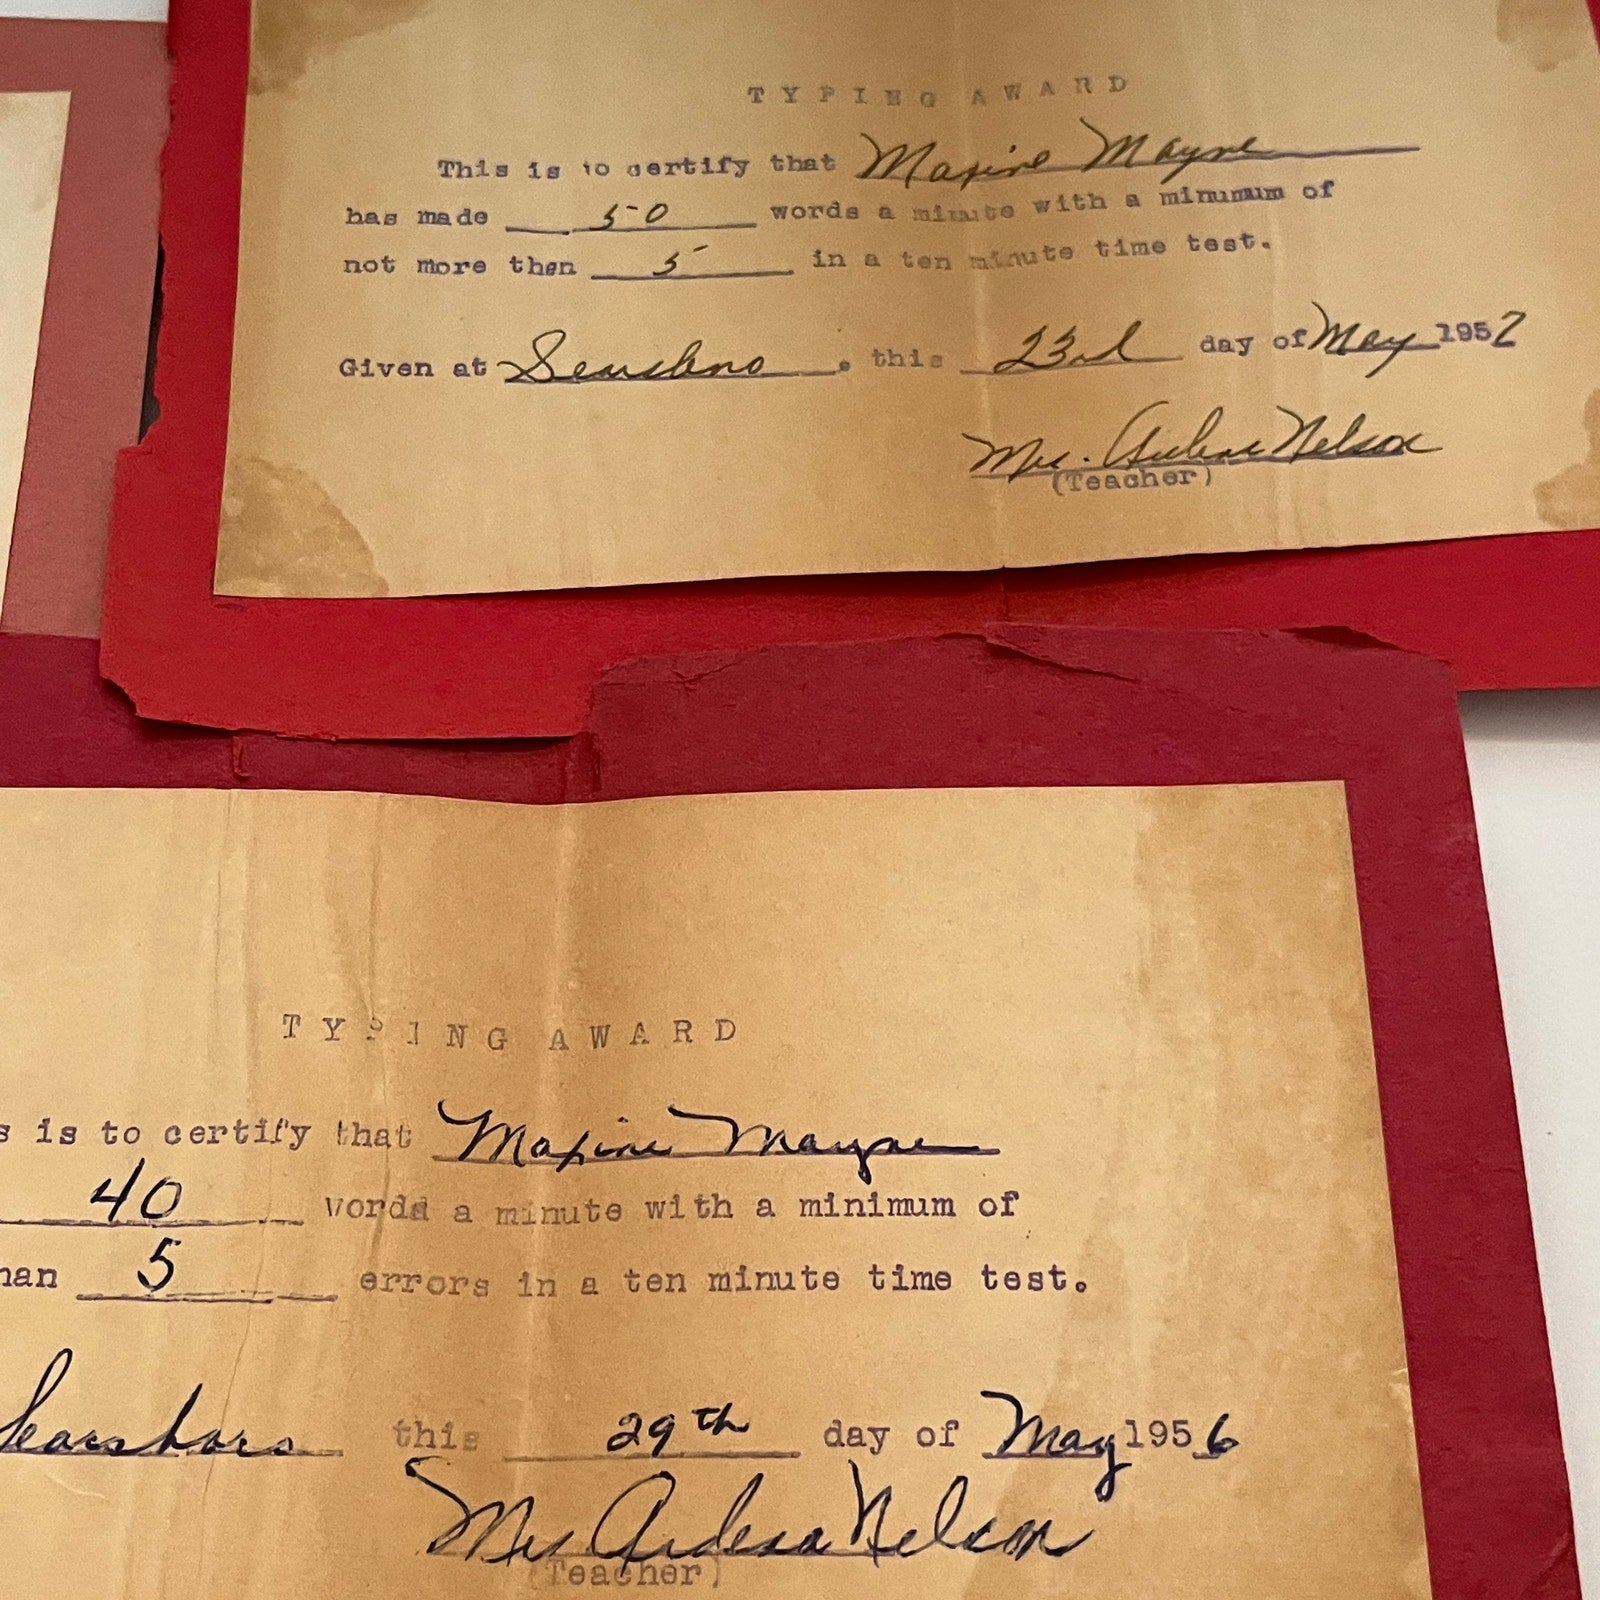 TYPING AWARD
This is to certify that Maxine Mayne
has made 50 words a minute with a minumum of
not more then 5 in a ten minute time test.
Given at , this 23rd day of May 1957
Mrs. Nelson
(Teacher)
TYPING AWARD
s is to certify that Maxine Mayne
40 words a minute with a minimum of
han 5 errors in a ten minute time test.
this 29th day of May 1956
Mrs Nelson
(Teacher)